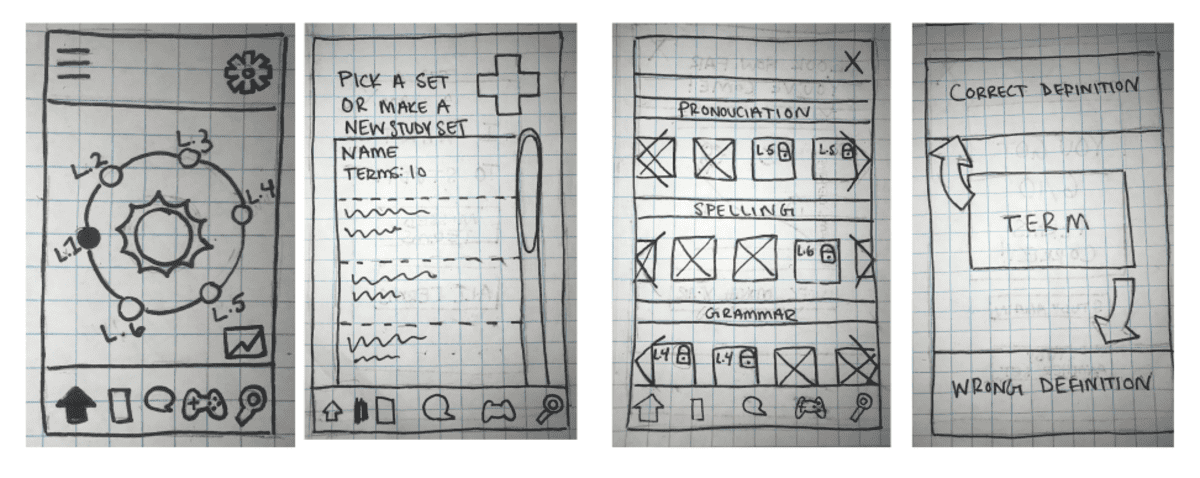 L.1
L.2
L.3
L.4
L.5
L.6
PICK A SET
OR MAKE A
NEW STUDY SET
NAME
TERMS: 10
PRONOUCIATION
L.5
L.5
SPELLING
L.6
GRAMMAR
L.4
L.4
CORRECT DEFINITION
TERM
WRONG DEFINITION